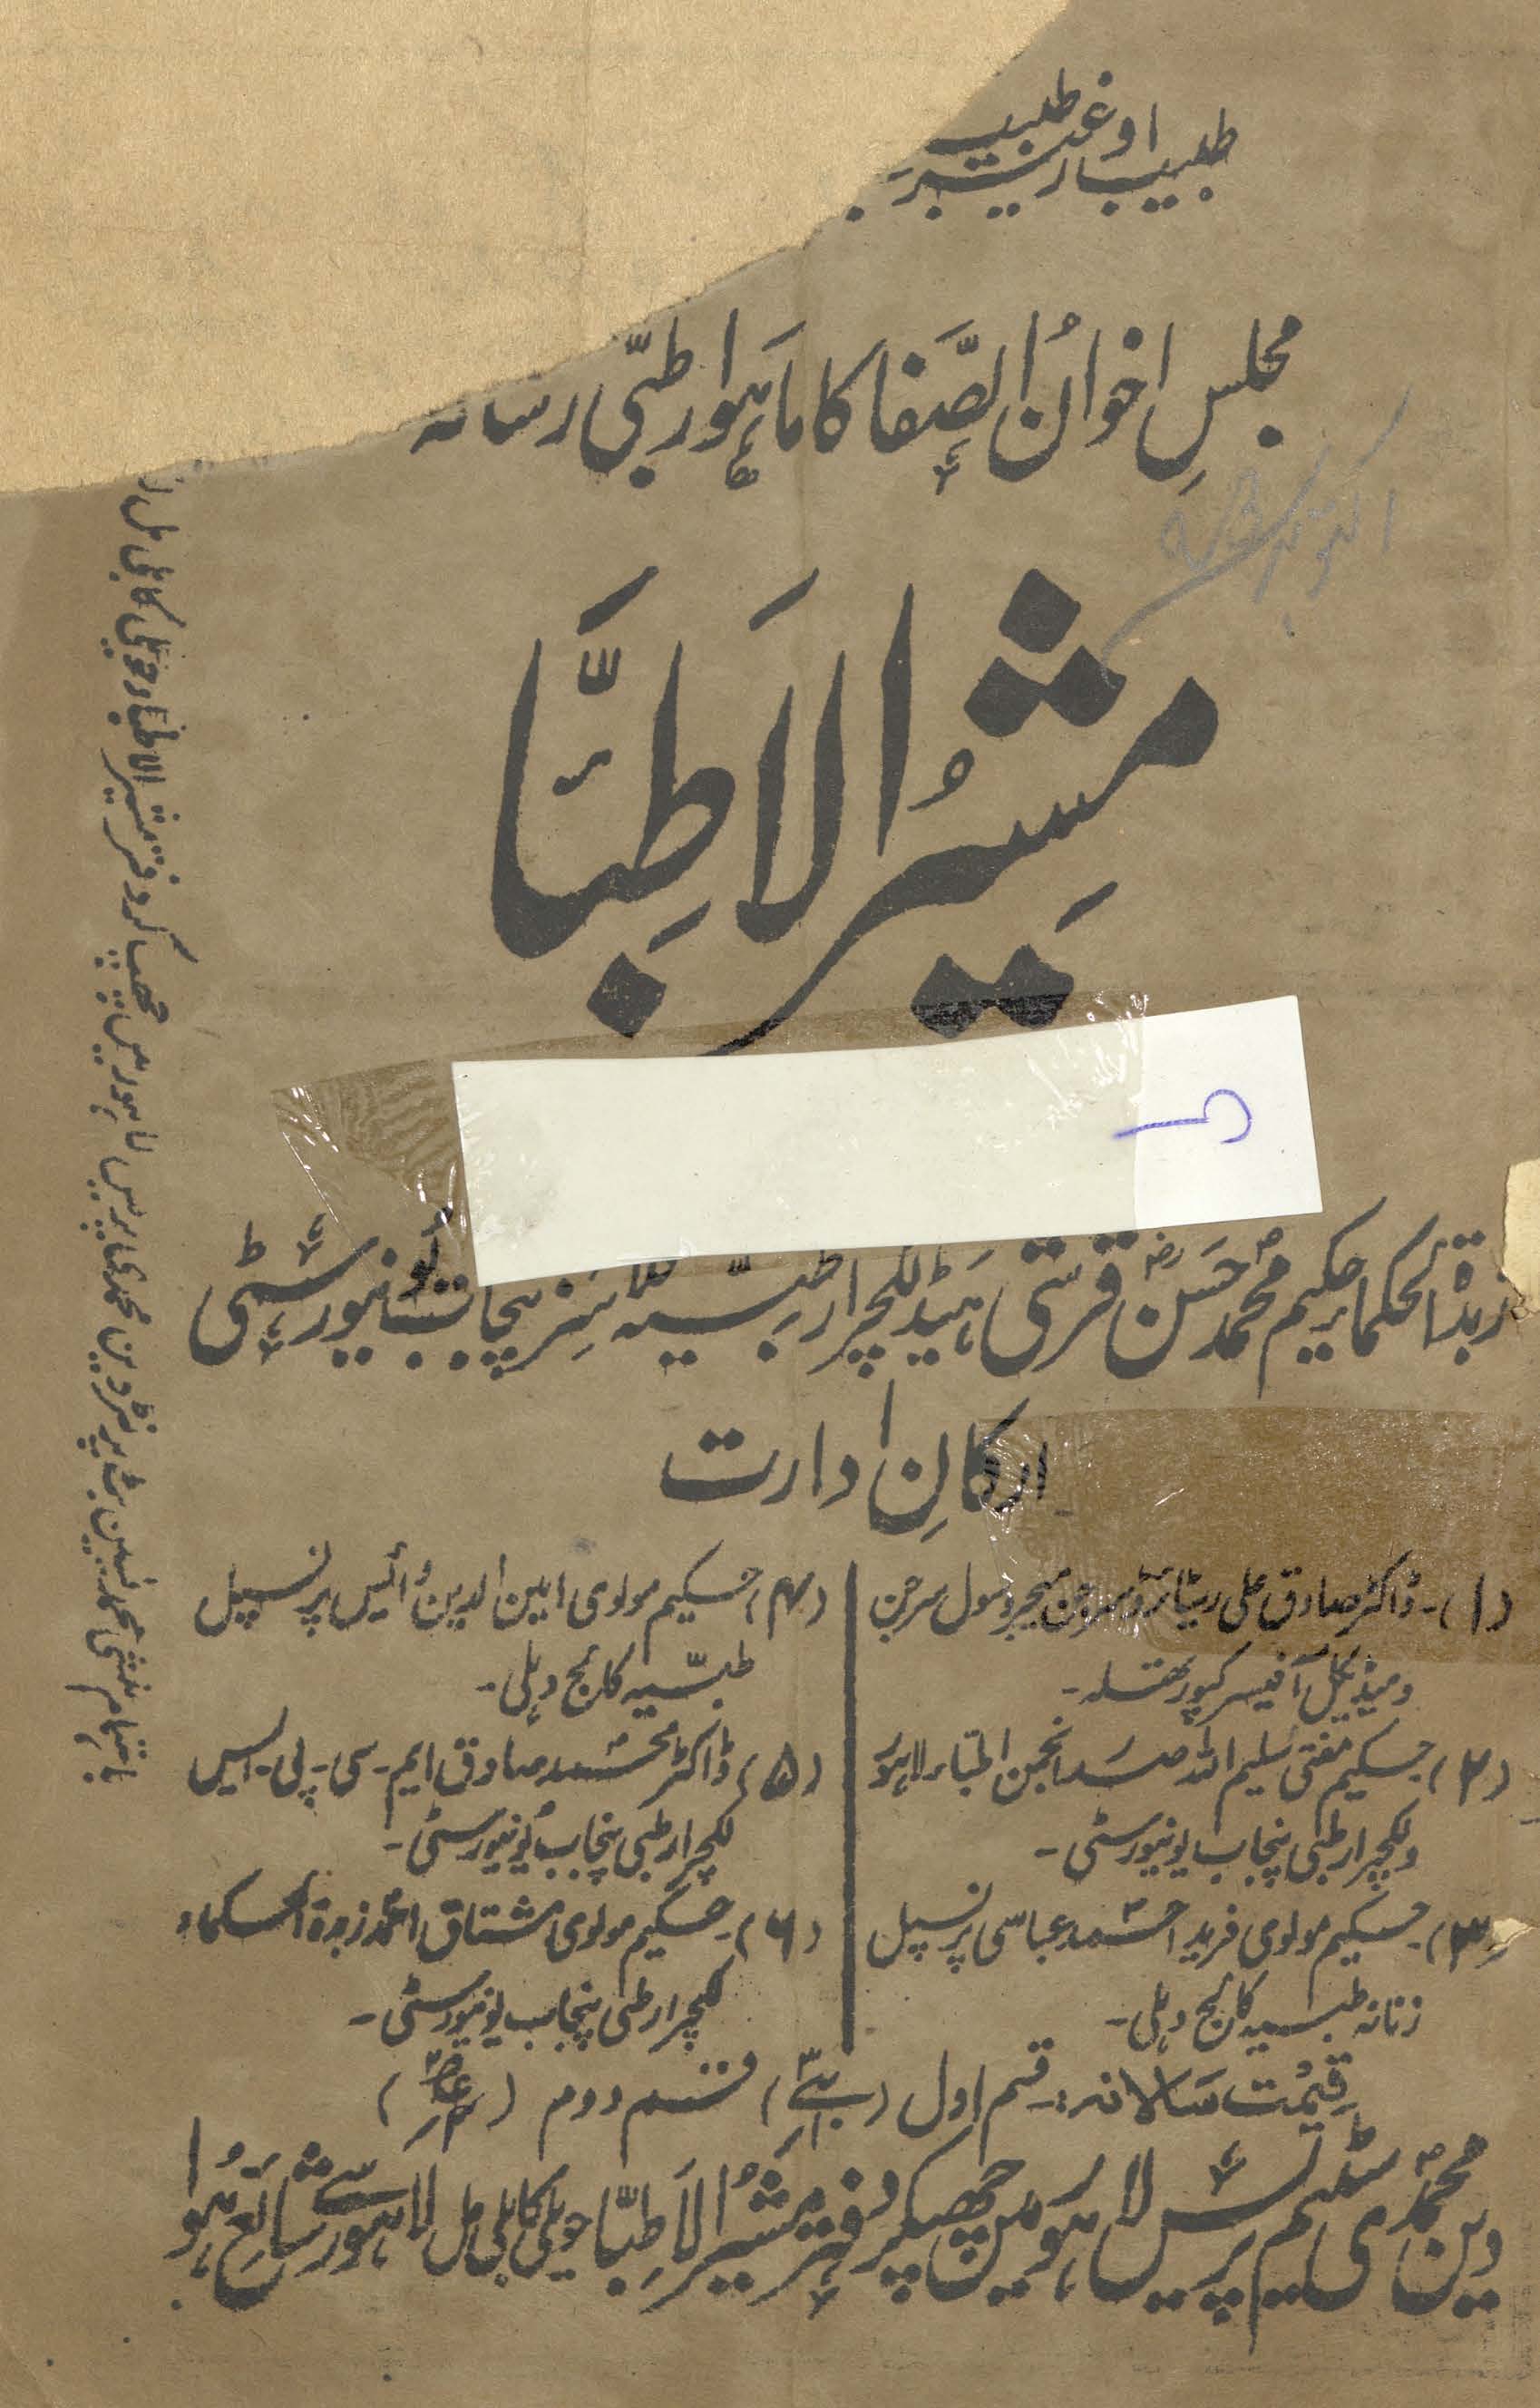 طبیب اور غیر طبیب
مجلسِ اخوانُ الصَّفا کا ماہوار طبّی رسالہ
مُشِیرُ الاَطِبَّا
زبدۃ الحکما حکیم محمد حَسَن قرشی ہیڈ لکچرار طبّیہ کلاسز پنجاب یونیورسٹی
ارکانِ ادارت
(۱)۔ ڈاکٹر صادق علی ریٹائرڈ سرجن میجر و سول سرجن
و میڈیکل آفیسر کپورتھلہ۔
(۲) حکیم مفتی سلیم اللہ صدر انجمن اطبّاء لاہور
و لکچرار طبی پنجاب یونیورسٹی۔
(۳) حکیم مولوی فرید احمد عباسی پرنسپل
زنانہ طبیہ کالج دہلی۔
(۴) حکیم مولوی امین الدین وائیس پرنسپل
طبّیہ کالج دہلی۔
(۵) ڈاکٹر محمد صادق ایم۔سی۔پی۔ایس
لکچرار طبی پنجاب یونیورسٹی۔
(۶) حکیم مولوی مشتاق احمد زبدۃ الحکماء
لکچرار طبی پنجاب یونیورسٹی۔
قیمت سالانہ:۔ قسم اول ( ) قسم دوم ( )
دین محمدی سٹیم پریس لاہور میں چھپکر دفتر مُشیرُ الاَطِبّا حویلی کابلی مل لاہور سے شائع ہُوا
باہتمام منشی محمد پرنٹر دین محمدی پریس لاہور میں چھپ کر دفتر مشیر الاطبا حویلی کابلی مل